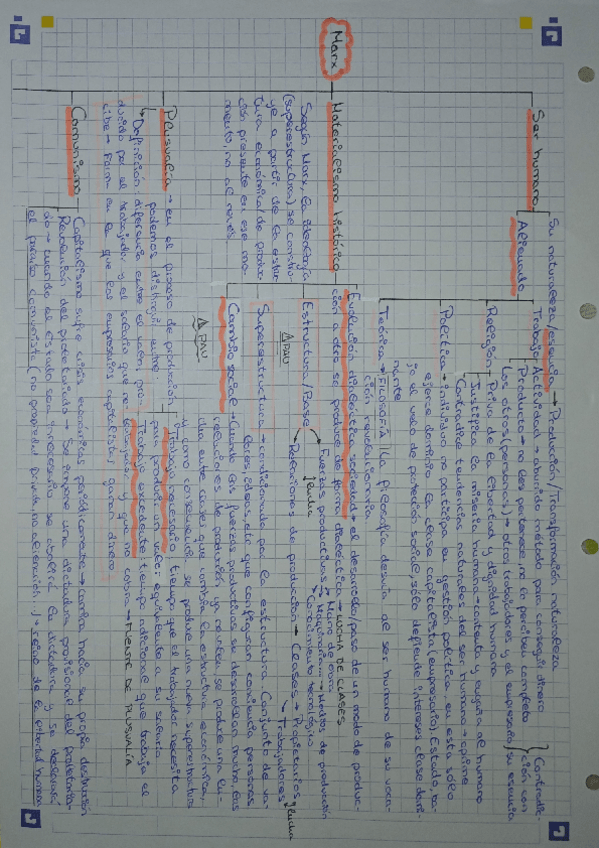 Marx
Ser humano
Su naturaleza/esencia → Producción/Transformación naturaleza
Alienado
Trabajo
Actividad → aburrido método para conseguir dinero
Producto → no les pertenece, no lo perciben completo
Los otros (personas) → otros trabajadores y el empresario
Contradicción con su esencia
Religión
Priva de la libertad y dignidad humana
Justifica la miseria humana → contenta y engaña al humano
Contradice tendencias naturales del ser humano → oprime
Política → individuo no participa en gestión política, en esta sólo
ejerce dominio la clase capitalista (empresario). Estado, ba-
jo el velo de potencia social, sólo defiende intereses clase domi-
nante
Teórica → FILOSOFÍA (La filosofía desvía al ser humano de su voca-
ción revolucionaria
Materialismo histórico
Según Marx, la ideología
(superestructura) se constru-
ye a partir de la estruc-
tura económica de produc-
ción presente en ese mo-
mento, no al revés
Evolución dialéctica sociedad → el desarrollo/paso de un modo de produc-
ción a otro se produce de forma dialéctica → LUCHA DE CLASES
Estructura/Base
Fuerzas productivas
Mano de obra
Maquinaria → Medios de producción
Crecimiento tecnológico
lucha
Relaciones de producción → Clases
Propietarios
Trabajadores
lucha
PAU
Superestructura → condicionada por la estructura. Conjunto de va-
lores, ideas, etc que configuran conciencia personas
Cambio social → Cuando las fuerzas productivas se desarrollan mucho, las
relaciones de producción ya no valen. Se produce una lu-
cha entre clases que cambia la estructura económica,
y como consecuencia se produce una nueva superestructura
PAU
Plusvalía → en el proceso de producción
podemos distinguir entre:
Trabajo necesario: tiempo que el trabajador necesita
para producir un valor equivalente a su salario
Trabajo excedente: tiempo adicional que trabaja el
trabajador y que no cobra → FUENTE DE PLUSVALÍA
Definición: diferencia entre el valor pro-
ducido por el trabajador y el salario que re-
cibe → Forma en la que los empresarios capitalistas ganan dinero
Comunismo
Capitalismo sufre crisis económicas periódicamente → camina hacia su propia destrucción
Revolución del proletariado → Se impone una dictadura provisional del proletaria-
do → cuando el Estado sea innecesario se abolirá la dictadura y se declarará
el paraíso comunista (no propiedad privada, no alienación...) → reino de la libertad humana